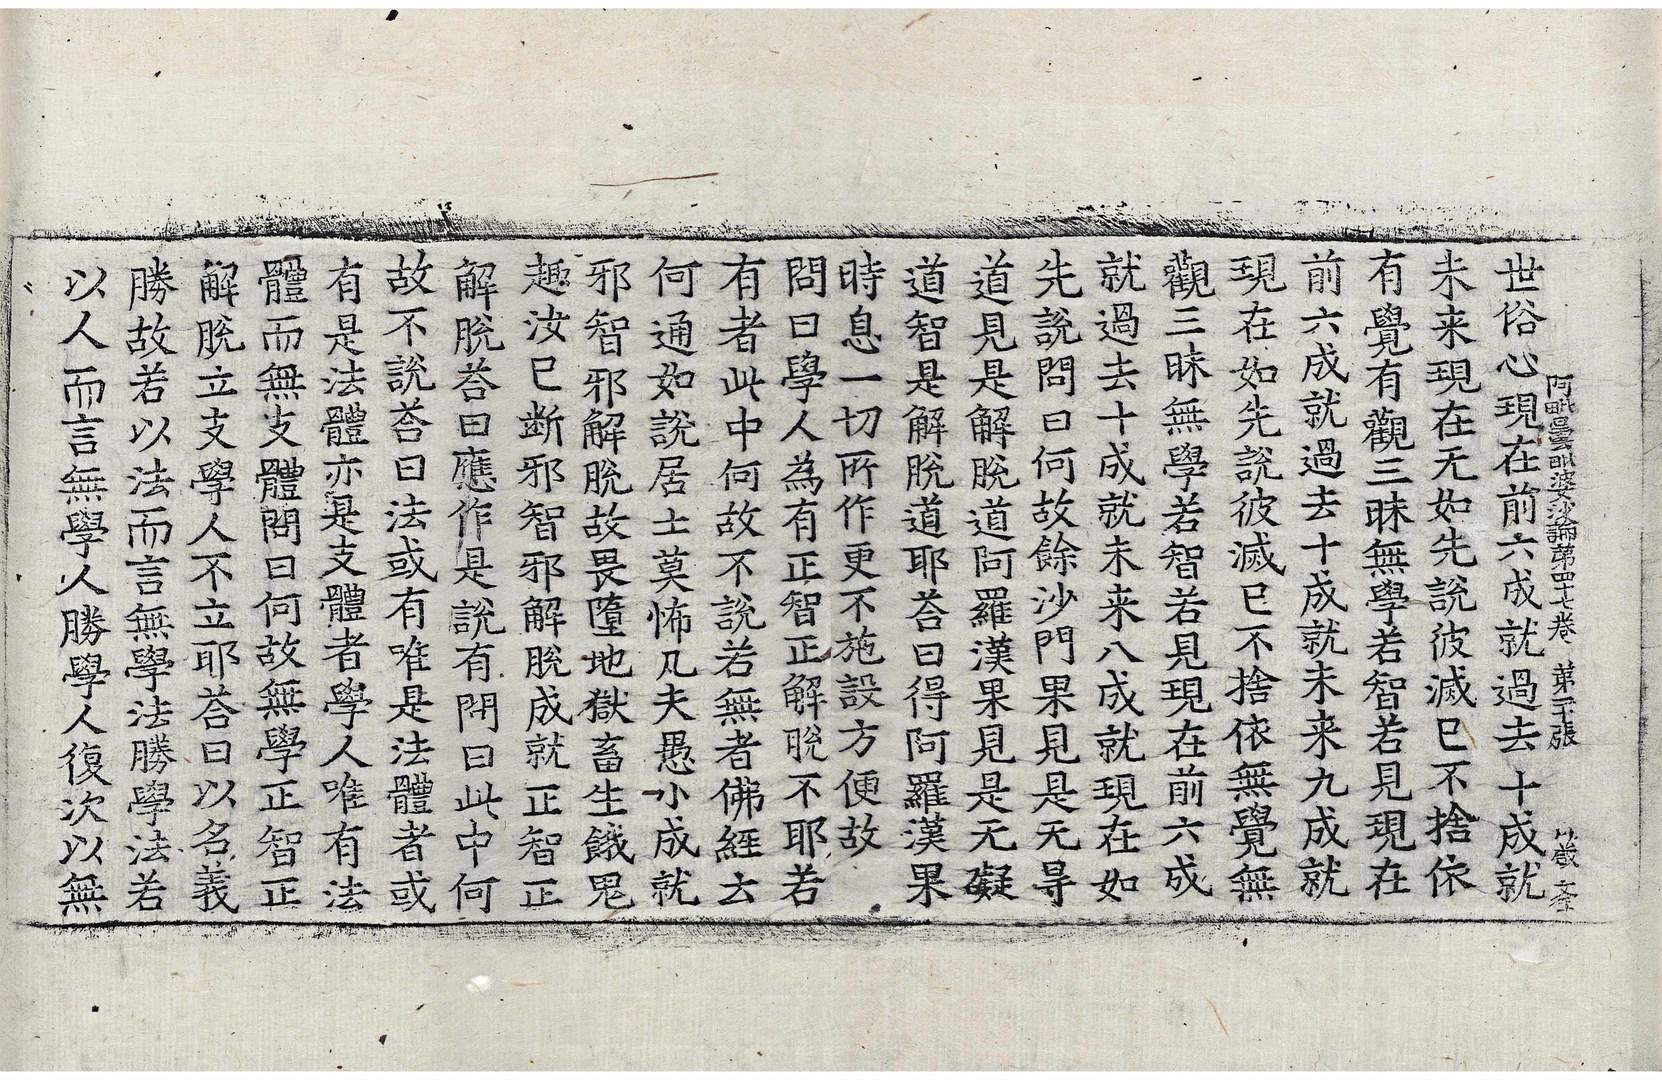 阿毗曇毗婆沙論第四十七卷 第二十張
世俗心現在前六成就過去十成就
未来現在无如先說彼滅已不捨依
有覺有觀三昧無學若智若見現在
前六成就過去十成就未来九成就
現在如先說彼滅已不捨依無覺無
觀三昧無學若智若見現在前六成
就過去十成就未来八成就現在如
先說問曰何故餘沙門果見是无㝵
道見是解脫道阿羅漢果見是无礙
道智是解脫道耶荅曰得阿羅漢果
時息一切所作更不施設方便故
問曰學人為有正智正解脫不耶若
有者此中何故不說若無者佛經云
何通如說居士莫怖凡夫愚小成就
邪智邪解脫故畏墮地獄畜生餓鬼
趣汝已斷邪智邪解脫成就正智正
解脫荅曰應作是說有問曰此中何
故不說荅曰法或有唯是法體者或
有是法體亦是支體者學人唯有法
體而無支體問曰何故無學正智正
解脫立支學人不立耶荅曰以名義
勝故若以法而言無學法勝學法若
以人而言無學人勝學人復次以無